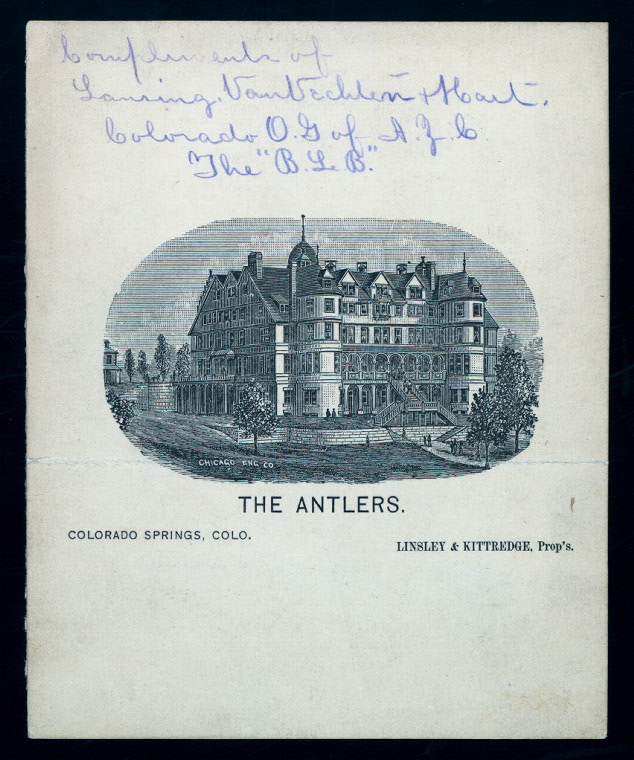 Compliments of
Lansing, VanVechten & Hart.
Colorado O.G of A.Z.C.
The "B.L.B."
CHICAGO ENG CO
THE ANTLERS.
COLORADO SPRINGS, COLO.
LINSLEY & KITTREDGE, Prop's.